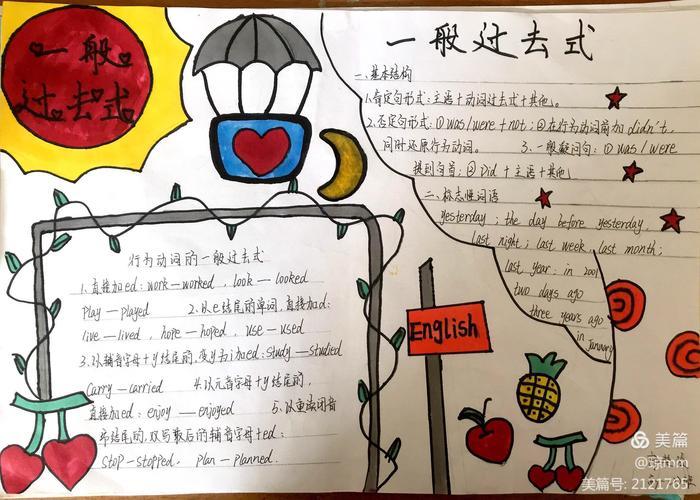 一般
过去式
一般过去式
一、基本结构
1.肯定句形式:主语+动词过去式+其他。
2.否定句形式:①was/were+not;②在行为动词前加didn't,
同时还原行为动词。 3、一般疑问句:①was/were
提到句首;②Did+主语+其他
二、标志性词语
yesterday;the day before yesterday,
last night;last week,last month;
last year;in 2001
two days ago
three years ago
in January
行为动词的一般过去式
1.直接加ed:work—worked,look—looked
play—played 2.以e结尾的单词,直接加d:
live—lived,hope—hoped,use—used
3.以辅音字母+y结尾的,变y为i加ed:study—studied
carry—carried 4.以元音字母+y结尾的,
直接加ed:enjoy—enjoyed 5.以重读闭音
节结尾的,双写最后的辅音字母+ed:
stop-stopped,plan—planned.
English
美篇
美篇号:2121765